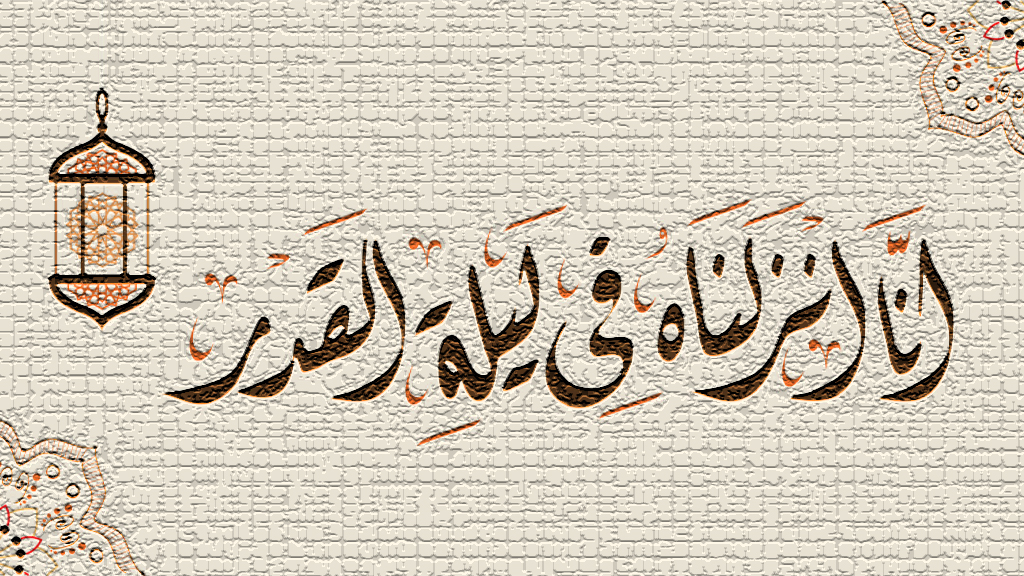 انا انزلناه في ليلة القدر